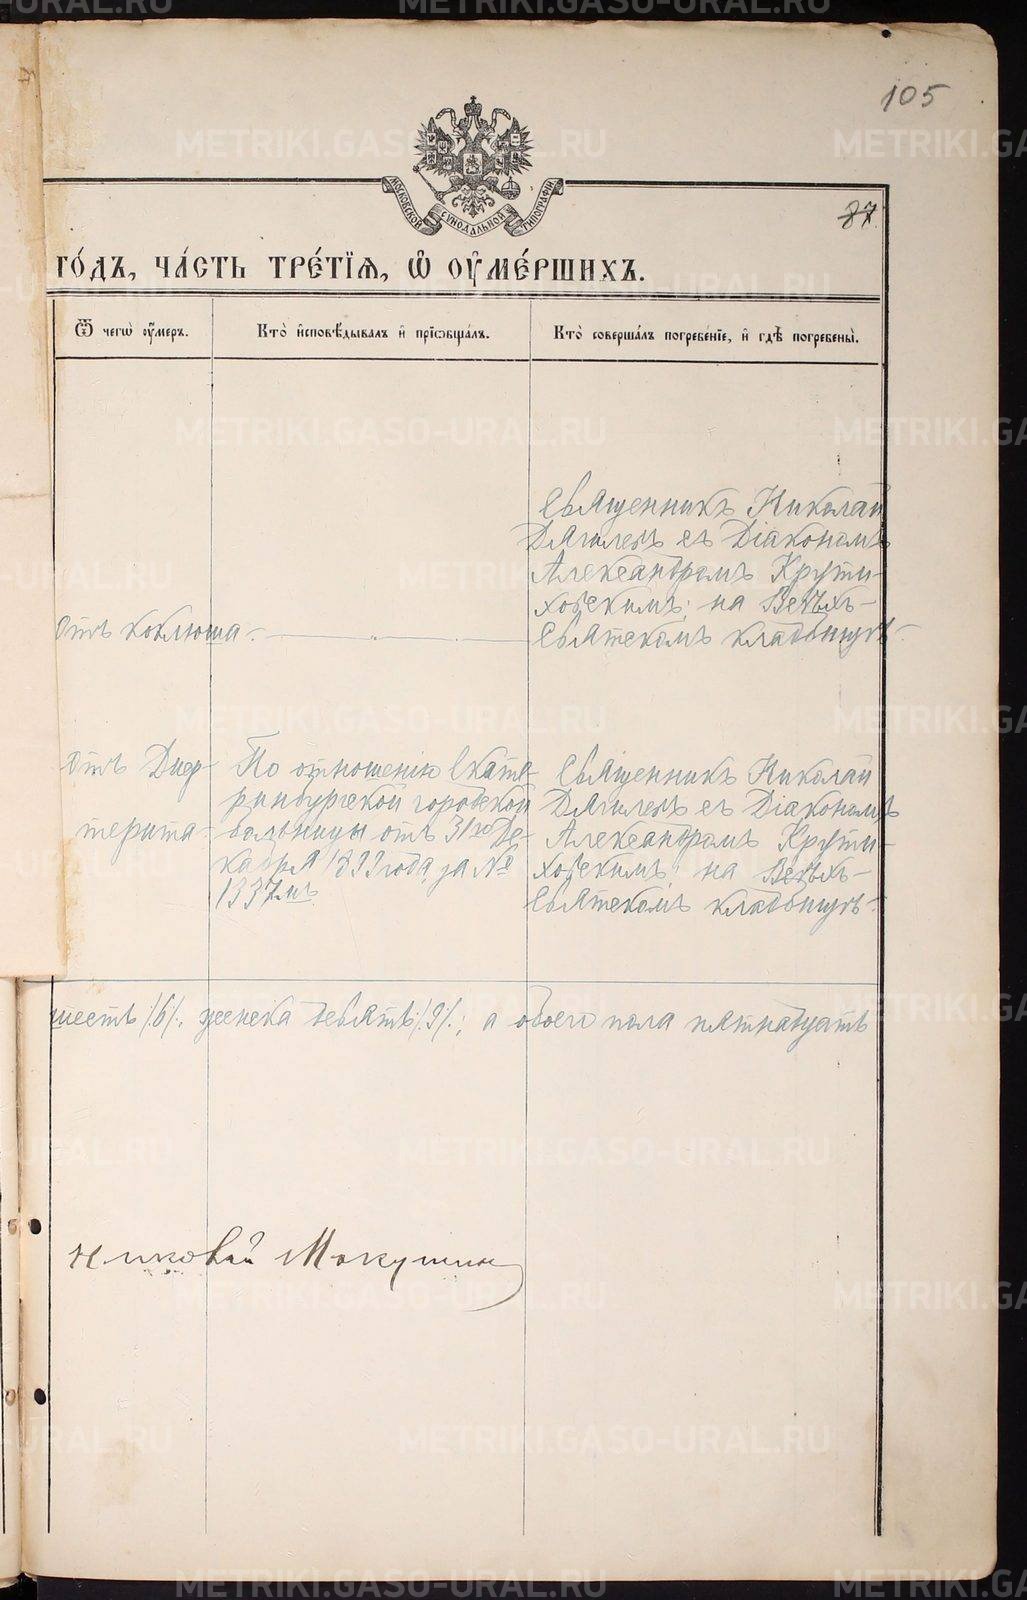 105
МОСКОВСКОЙ СѴНОДАЛЬНОЙ ТИПОГРАФІИ
87
го́дъ, ча́сть тре́тїѧ, ѽ ᲂу҆ме́ршихъ.
Ѿ чегѡ̀ ᲂу҆́меръ.
Кто̀ и҆сповѣ́дывалъ и҆ прїѡбща́лъ.
Кто̀ соверша́лъ погребе́нїе, и҆ гдѣ̀ погребены̀.
Отъ коклюша.
Священникъ Николай
Дягилевъ съ Діакономъ
Александромъ Крути-
ховскимъ на Всѣхъ-
святскомъ кладбищѣ.
Отъ Диф-
терита
По отношенію Екате-
ринбургской городской
больницы отъ 31го Де-
кабря 1899 года за №
1337мъ
Священникъ Николай
Дягилевъ съ Діакономъ
Александромъ Крути-
ховскимъ на Всѣхъ-
святскомъ кладбищѣ.
шесть /6/, женска девять /9/; а обоего пола пятнадцать
Николай Мокушин
METRIKI.GASO-URAL.RU